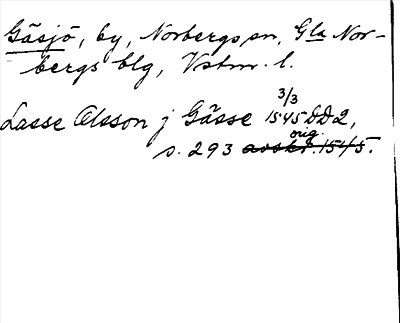 Gäsjö, by, Norbergs sn, Gla Nor-
bergs blg, Vstm. l.
Lasse Olsson j Gässe 3/3 1545 DD2,
s. 293 orig. avskr. 1545.